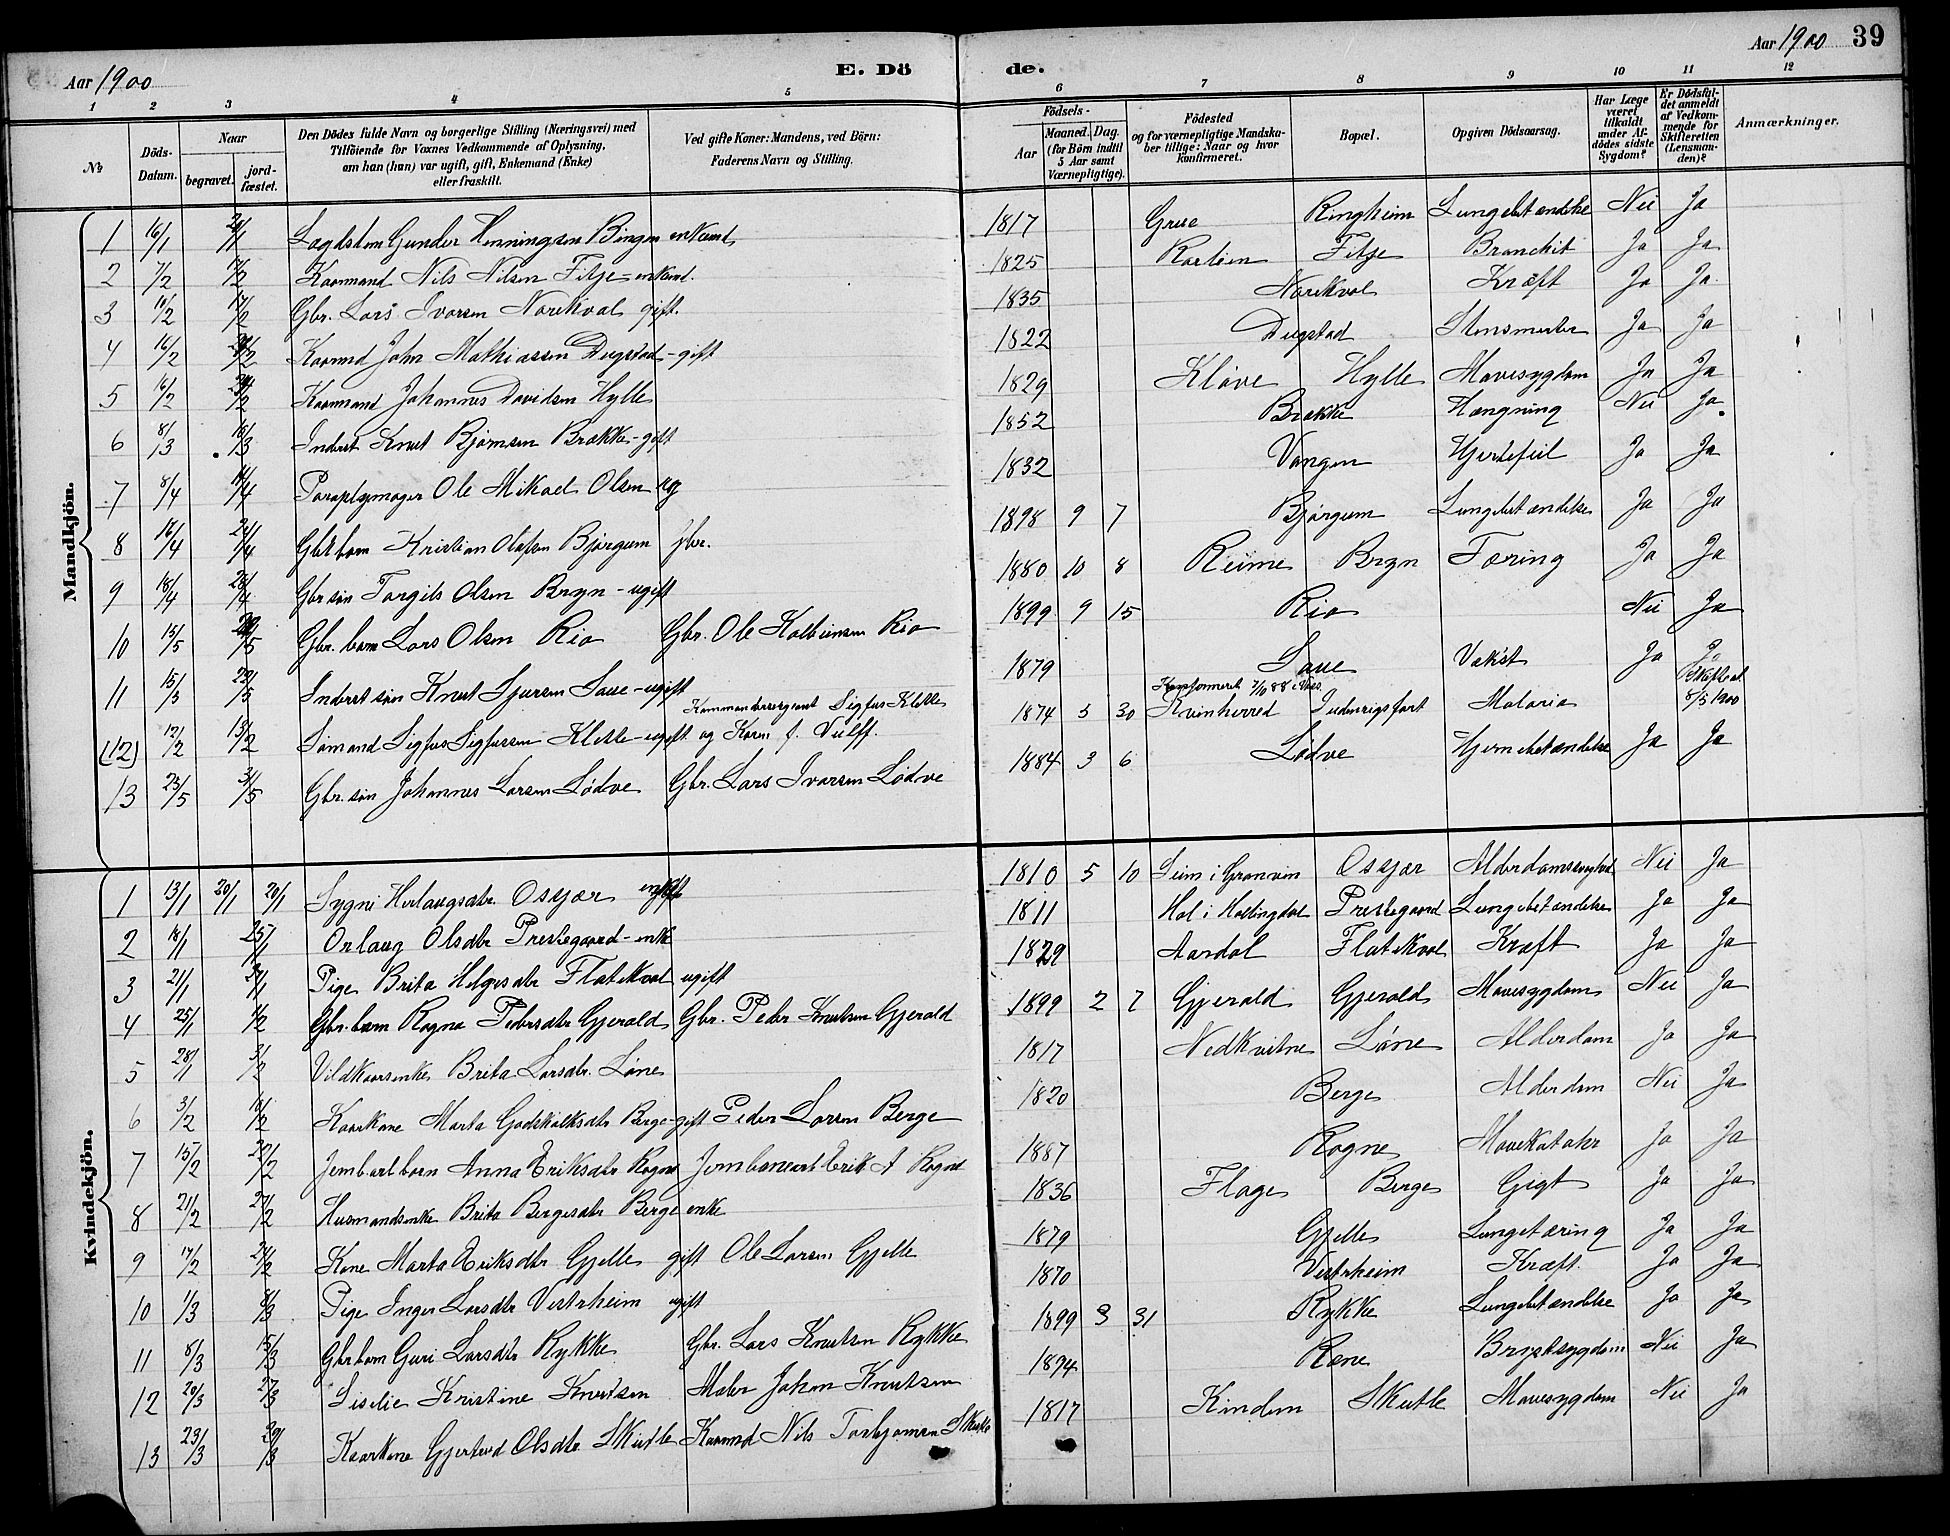 Aar 1900 E. Dö de. Aar 1900 39
1 2 3 4 5 6 7 8 9 10 11 12
№ Döds-Datum. Naar begravet. jord-fæstet. Den Dödes fulde Navn og borgerlige Stilling (Næringsvei) med Tilföiende for Voxnes Vedkommende af Oplysning, om han (hun) var ugift, gift, Enkemand (Enke) eller fraskilt. Ved gifte Koner: Mandens, ved Börn: Faderens Navn og Stilling. Födsels- Aar Maaned. Dag. (for Börn indtil 5 Aar samt Værnepligtige). Födested og for værnepligtige Mandskaber tillige: Naar og hvor konfirmeret. Bopæl. Opgiven Dödsaarsag. Har Læge været tilkaldt under Afdödes sidste Sygdom? Er Dödsfaldet anmeldt af Vedkommende for Skifteretten (Lensmanden)? Anmærkninger.
Mandkjön.
1 16/1 Lagdslem Gunder Henningsen Bingen enkemd 1817 Grue Ringheim Lungebetændelse Nei Ja
2 7/2 Kaarmand Nils Nilsen Fitje - enkemd. 1825 Fitje Bronchit Ja Ja
3 10/2 17/2 Gbr. Lars Ivarsen Norekval gift. 1835 Norekval Kræft Ja Ja
4 16/2 Kaarmd John Mathiassen Dugstad - gift 1822 Dugstad Ja Ja
5 16/2 Kaarmand Johannes Davidsen Hylle 1829 Kløve Hylle Mavesygdom Ja Ja
6 8/3 16/3 Inderst Knut Bjørnsen Brakke - gift 1852 Brakke Hængning Nei Ja
7 8/4 14/4 Paraplymager Ole Mikael Olsen ug 1832 Vangen Hjertefeil Ja Ja
8 16/4 21/4 Gbr. barn Kristian Olafsen Bjørgum Gbr. 1898 9 7 Bjørgum Lungebetændelse Ja Ja
9 18/4 28/4 Gbr søn Torgils Olsen Bryn - ugift 1880 10 8 Reime Bryn Tæring Ja Ja
10 15/5 Gbr. barn Lars Olsen Rio Gbr. Ole Kolbeinsen Rio 1899 9 15 Rio Nei Ja
11 15/5 22/5 Inderst søn Knut Sjursen Saue - ugift 1879 Saue Vækst Ja Ja
(12) 12/2 13/2 Sømand Sigfus Sigfussen Klette - ugift Kommandersergeant Sigfus Klette og Karen f. Vulff. 1874 5 30 Konfirmeret 7/10 88 i Voss. Kvinherred Indenrigsfart Malaria 8/5 1900
13 25/5 31/5 Gbr. søn Johannes Larsen Lødve Gbr. Lars Ivarsen Lødve 1884 3 6 Lødve Hjernebetændelse Ja Ja
Kvindekjön.
1 13/1 20/1 20/1 Sygni Herlaugsdtr. Osgjar 1810 5 10 Seim i Granvin Osgjar Alderdomssvaghed Nei Ja
2 18/1 25/1 Orlaug Olsdtr Prestegaard - enke 1811 Hol i Hallingdal Prestegaard Lungebetændelse Ja Ja
3 21/1 27/1 Pige Brita Helgesdtr Flatekval ugift 1829 Aardal Flatekval Kræft Ja Ja
4 25/1 1/2 Gbr. barn Ragna Pedersdtr Gjerald Gbr. Peder Knutsen Gjerald 1899 2 7 Gjerald Gjerald Mavesygdom Nei Ja
5 28/1 3/2 Vildkaarsenke Brita Larsdtr. Løne 1817 Nedkvitne Løne Alderdom Ja Ja
6 3/2 10/2 Kaarkone Marta Godskalksdtr Berge - gift Peder Larsen Berge 1820 Berge Alderdom Nei Ja
7 15/2 Jernbarb barn Anna Eriksdtr Rogne Jernbanearb Erik A Rogne 1887 Rogne Mavekatarr Ja Ja
8 21/2 27/2 Husmandsenke Brita Bergesdtr Berge enke 1836 Flage Berge Gigt Ja Ja
9 17/2 24/2 Kone Marta Eriksdtr Gjelle gift Ole Larsen Gjelle 1879 Gjelle Lungetæring Ja Ja
10 1/3 8/3 Pige Inger Larsdtr Vestrheim ugift 1870 Vestrheim Kræft. Ja Ja
11 8/3 15/3 Gbr barn Guri Larsdtr Rykke Gbr. Lars Knutsen Rykke 1899 3 31 Rykke Lungebetændelse Ja Ja
12 20/3 27/3 Siselie Kristine Knutsen Maler Johan Knutsen 1894 Rene Brystsygdom Nei Ja
13 23/3 29/3 Kaarkone Gjertrud Olsdtr Skutle Kaarmd Nils Torbjørnsen Skutle 1817 Kindem Skutle Mavesygdom Nei Ja